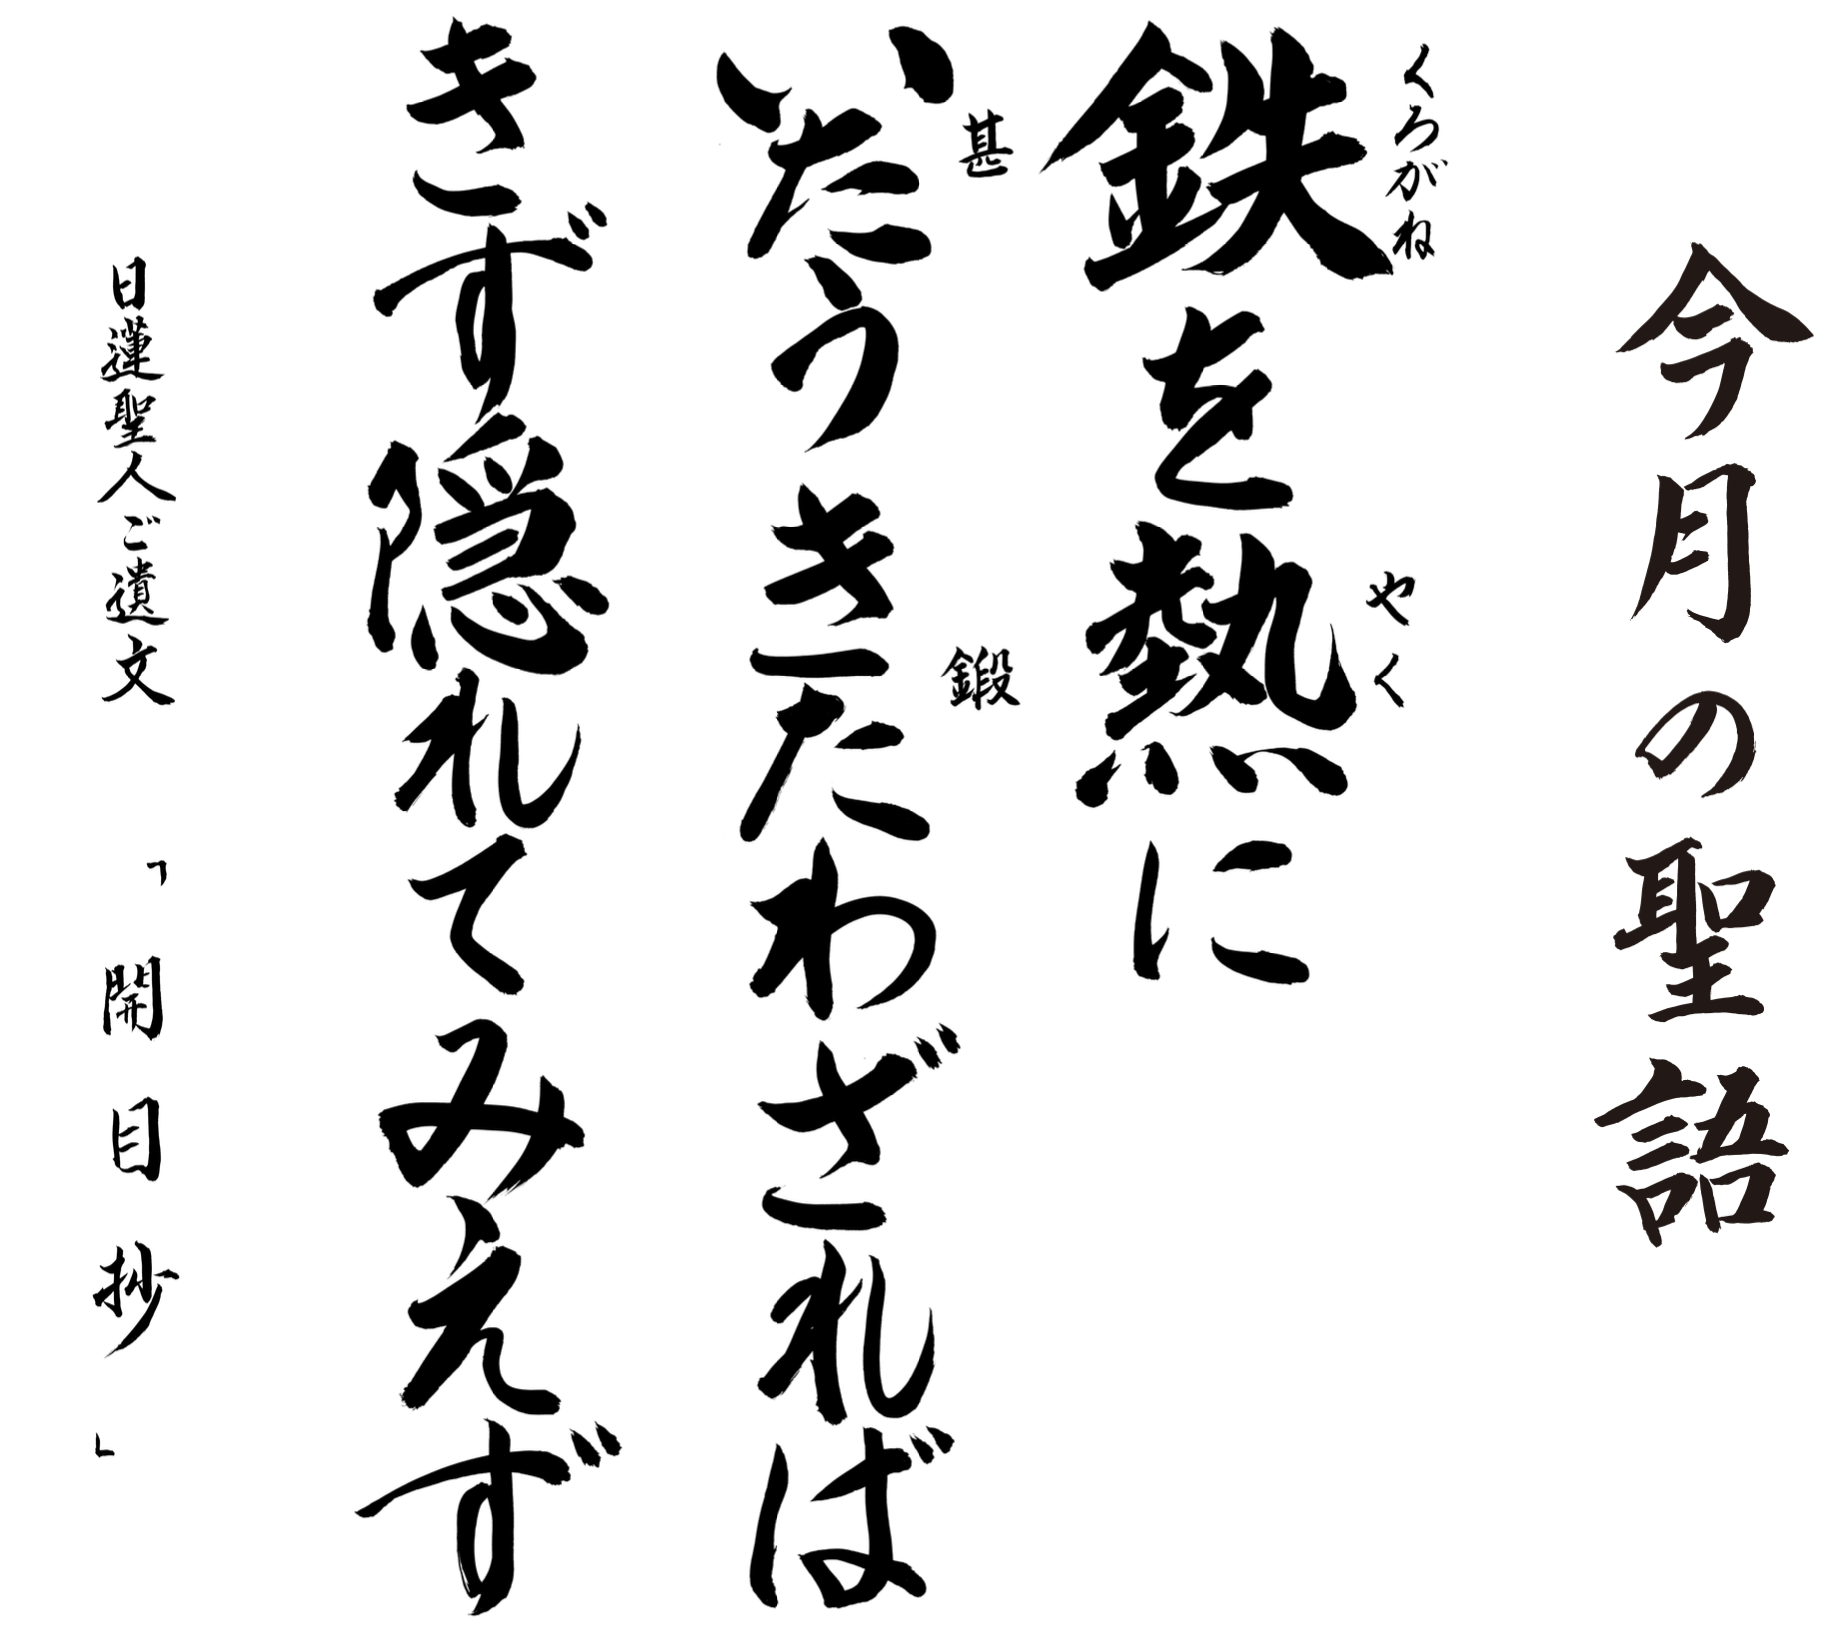 今月の聖語
くろがね
鉄を熱に
やく
甚
鍛
いたうきたわざればきず隠れてみえず
日蓮聖人ご遺文 「開目抄」